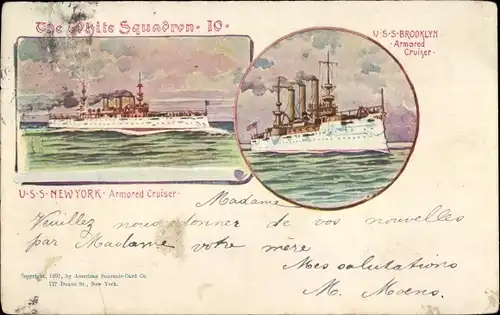 The White Squadron· 10·
U·S·S·BROOKLYN
·Armored
Cruiser·
U·S·S· NEW YORK · Armored Cruiser·
Madame
Veuillez nous donner de vos nouvelles
par Madame votre mère
Mes salutations
M. Moens.
Copyright, 1897, by American Souvenir-Card Co.
127 Duane St., New York.